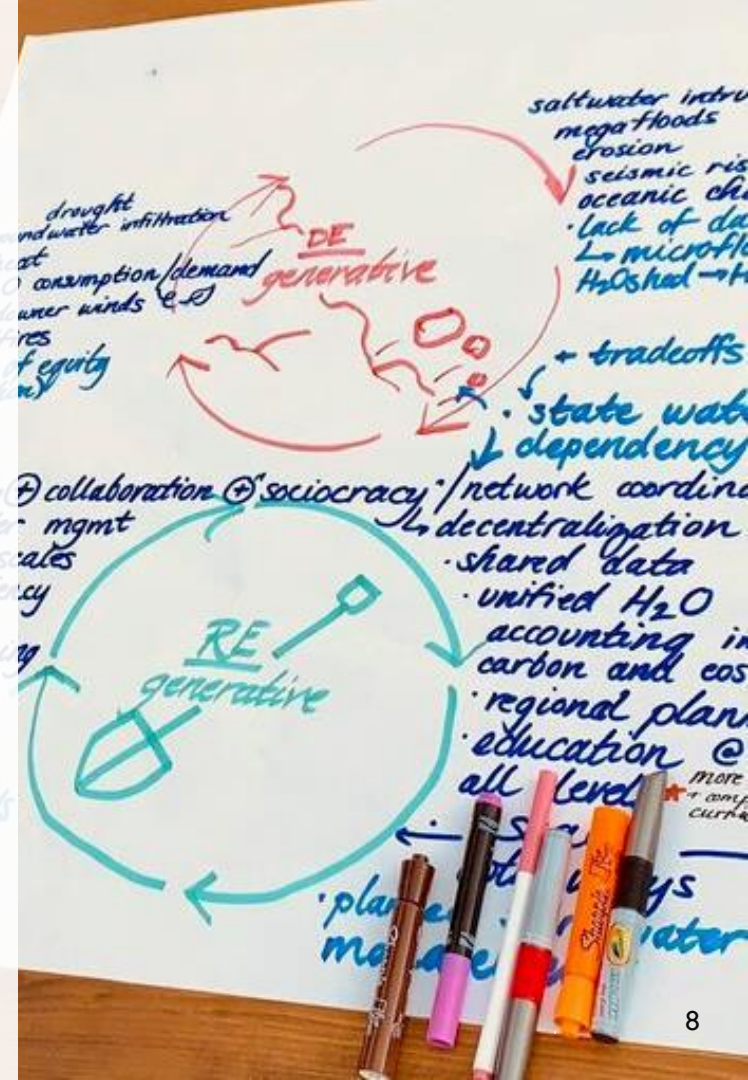 saltwater intru
megafloods
erosion
seismic ris
oceanic ch
· lack of da
↳ microflo
H₂Oshed → H
drought
ndwater infiltration
at
consumption/demand
owner winds
res
of equity
DE
generative
← tradeoffs
· state wate
dependency
⊕ collaboration ⊕ sociocracy · / network coordina
mgmt
↳ decentralization
cales
· shared data
cy
· unified H₂O
ing
accounting in
carbon and eos
RE
generative
· regional plann
· education @
all level
more
+ comp
curri
ys
· pla
water
ma
Sharpie
Crayola
8